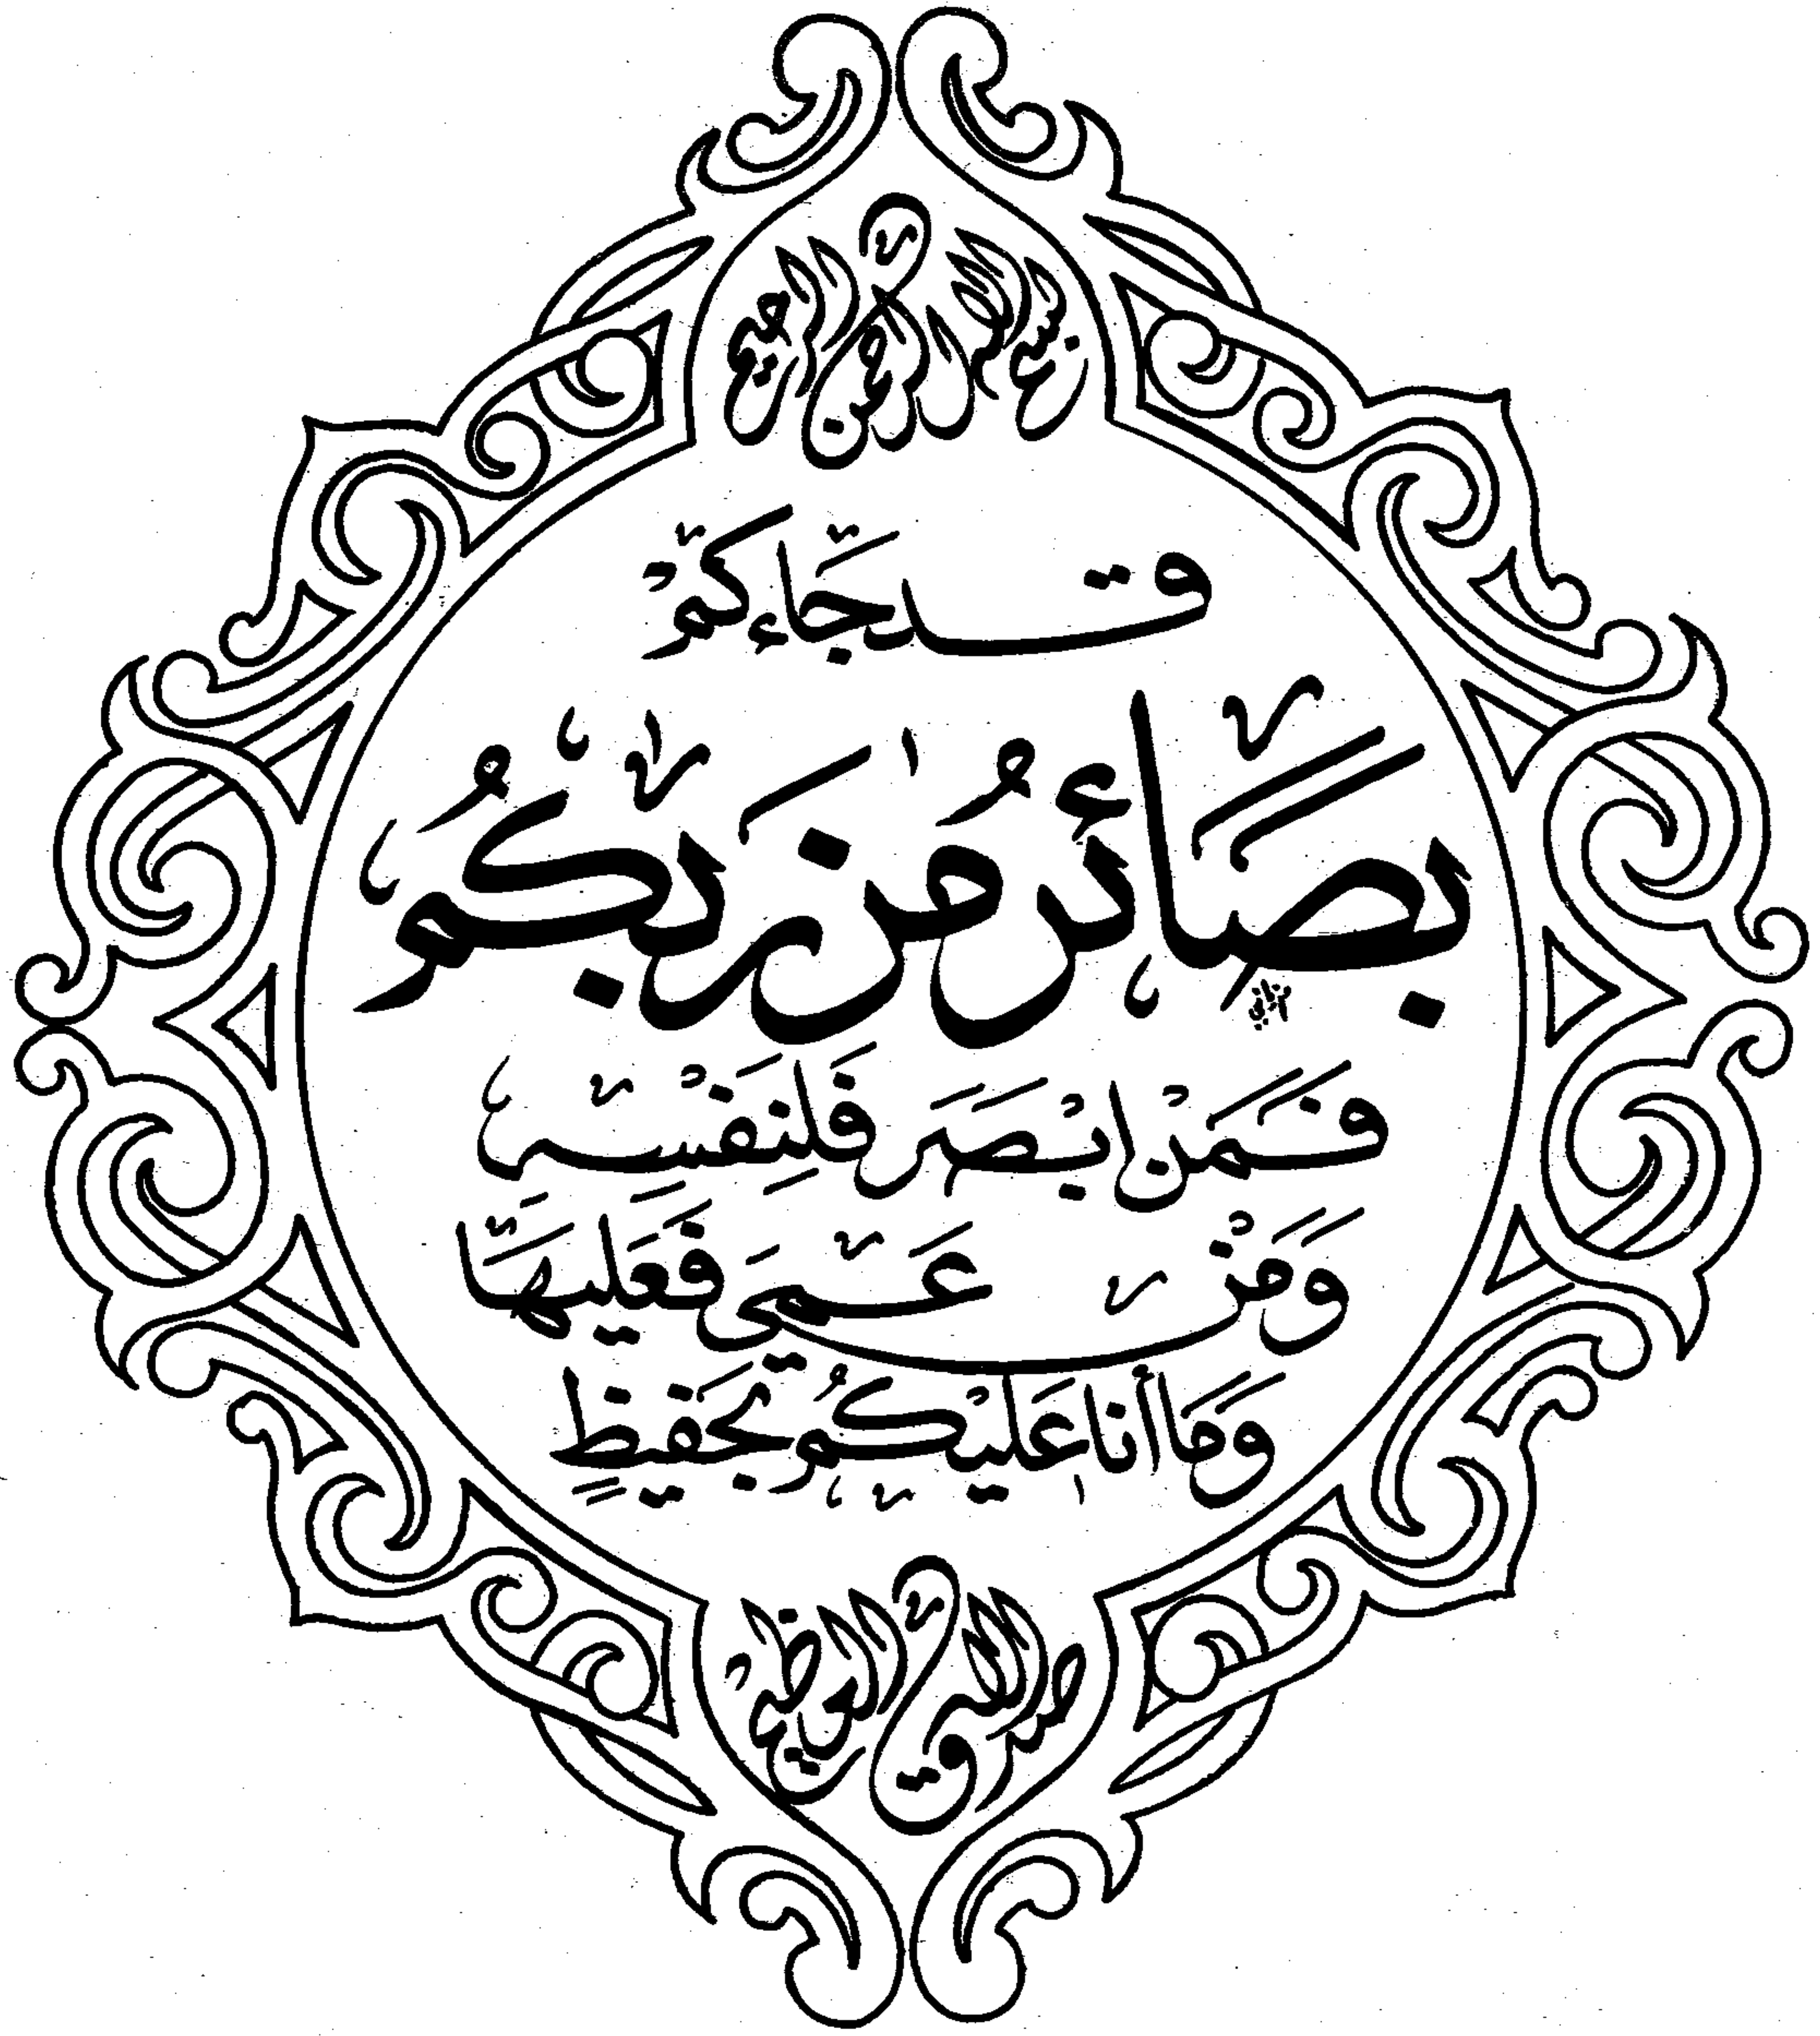 بسم الله الرحمن الرحيم
قد جاءكم
بصائر من ربكم
فمن أبصر فلنفسه
ومن عمي فعليها
وما أنا عليكم بحفيظ
صدق الله العظيم